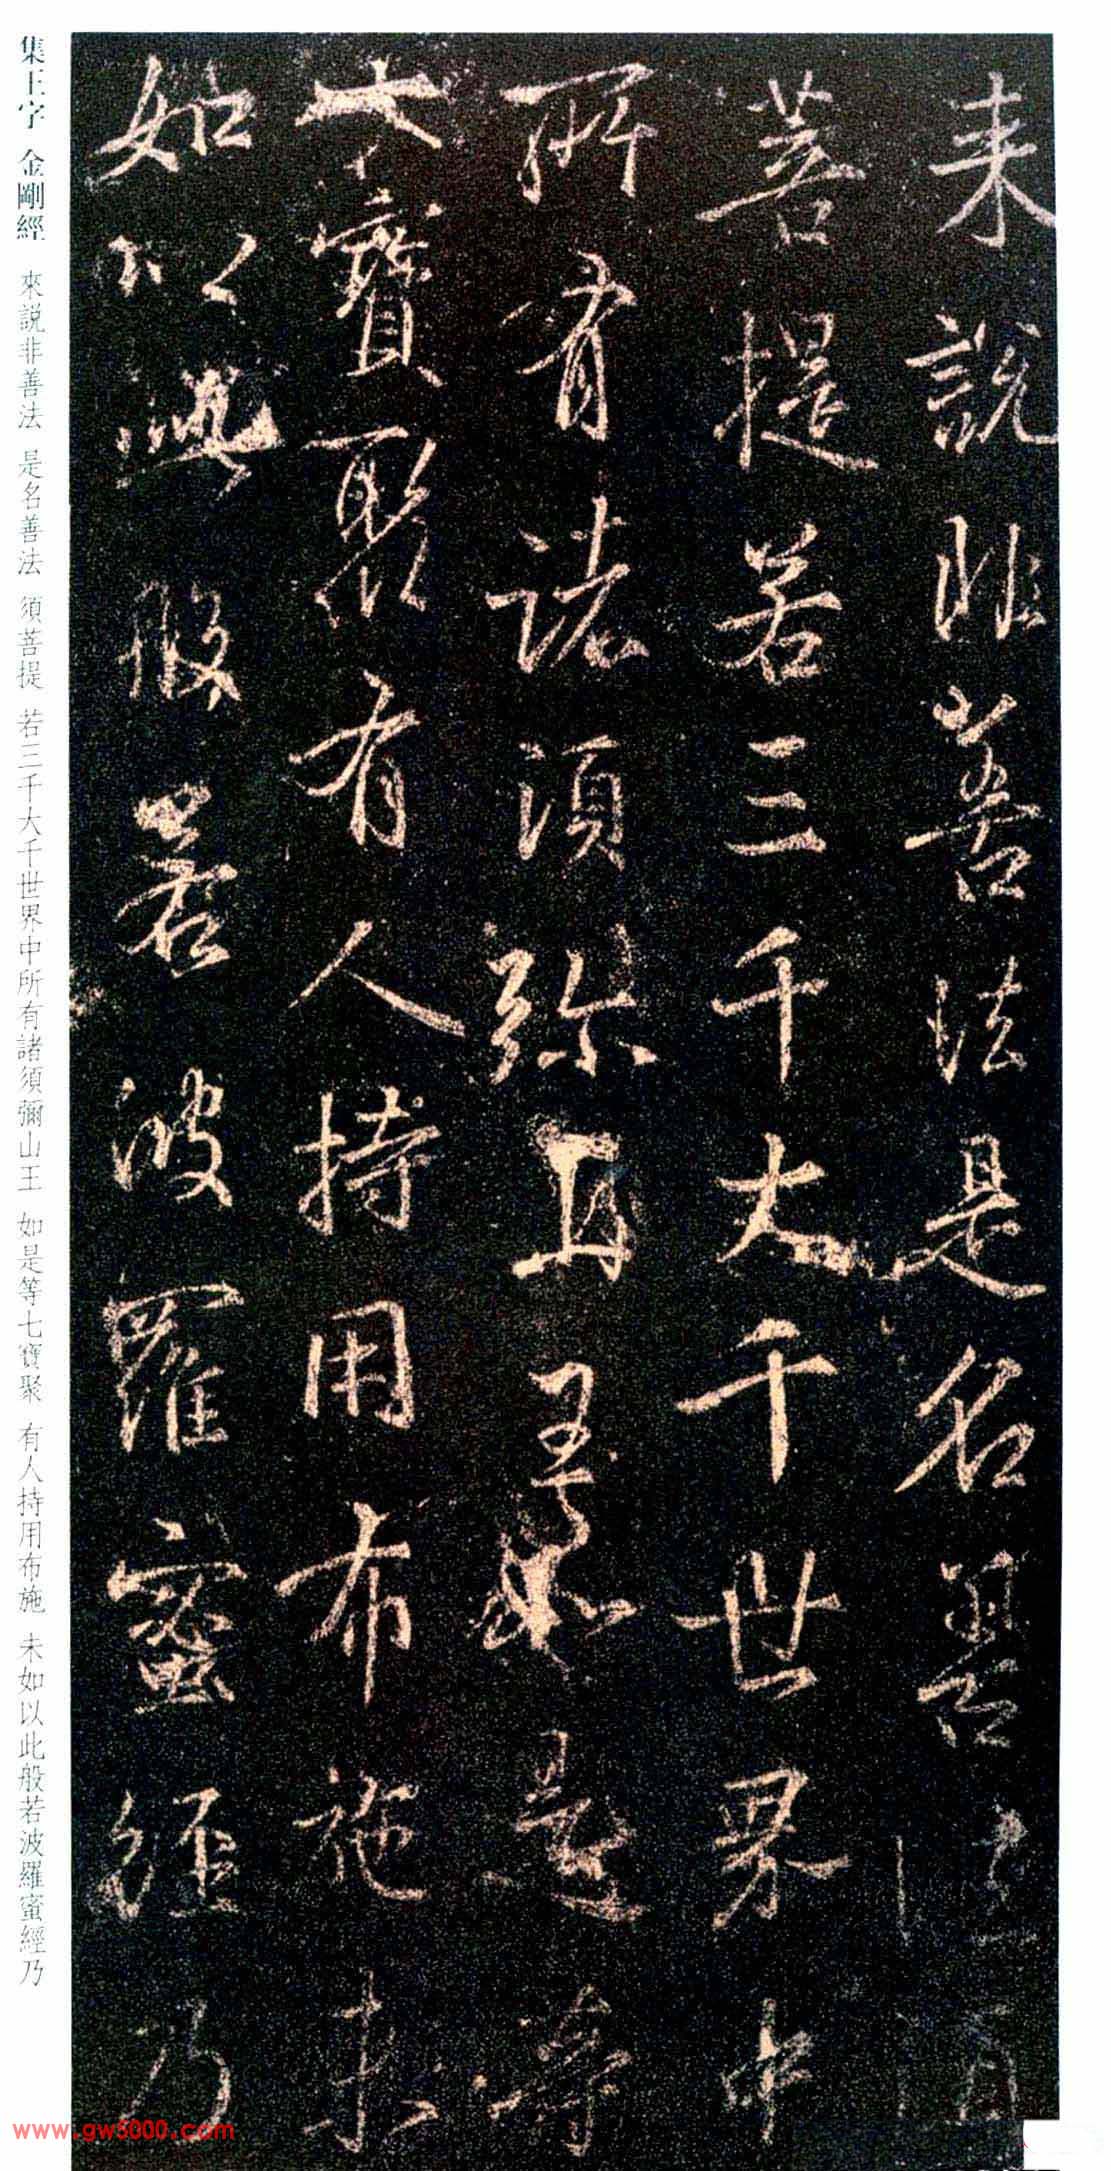 来説非善法是名善法須
菩提若三千大千世界中
所有諸須弥山王如是等
七寶聚有人持用布施未
如以此般若波羅蜜經乃
集王字 金剛經 來説非善法 是名善法 須菩提 若三千大千世界中所有諸須彌山王 如是等七寶聚 有人持用布施 未如以此般若波羅蜜經乃
www.gw5000.com